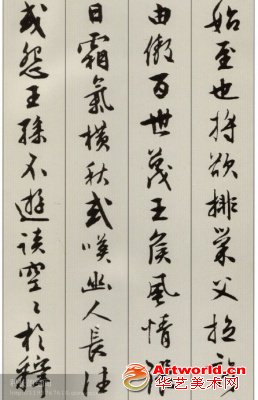 始至也將欲排巢父拉許
由傲百世蔑王侯風情張
日霜氣橫秋或嘆幽人長往
或怨王孫不遊談空〻於釋
Artworld.cn
华艺美术网